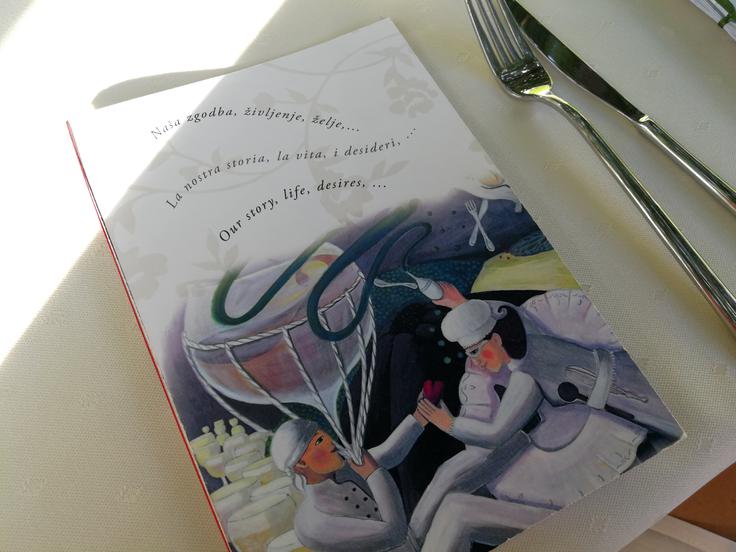 Naša zgodba, življenje, želje,...
La nostra storia, la vita, i desideri, ...
Our story, life, desires, ...